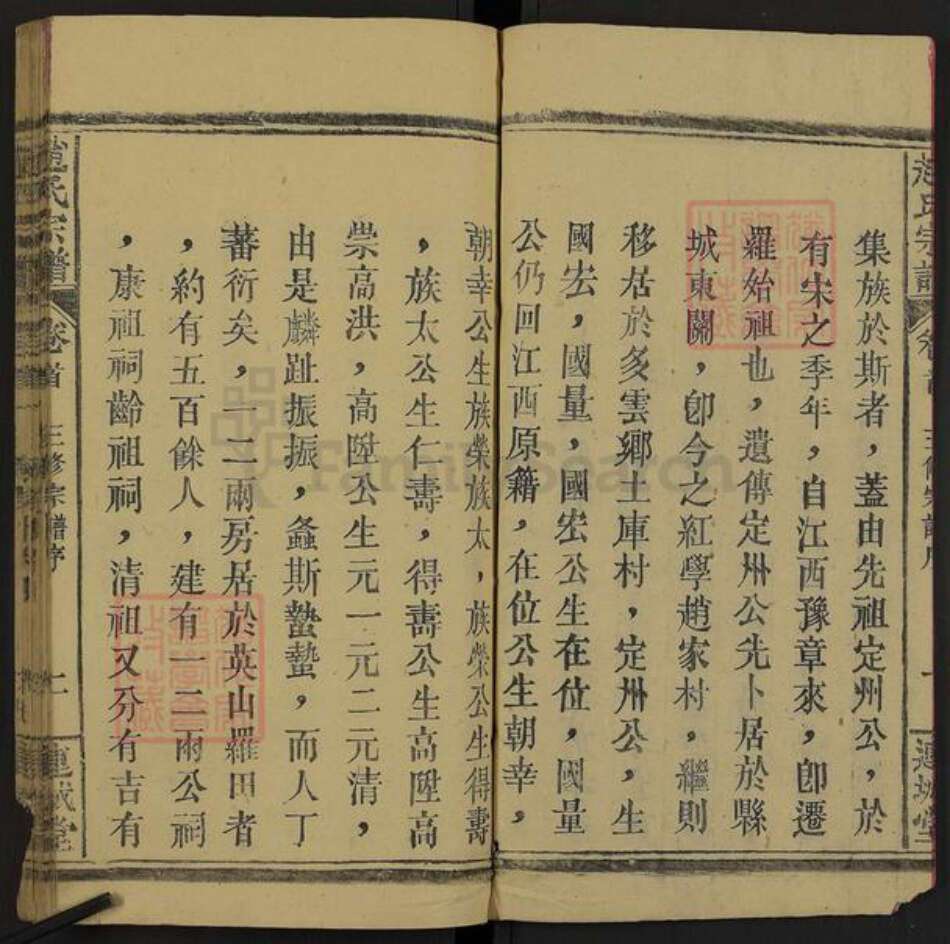 趙氏宗譜 卷首 三修宗譜序 一 連城堂
集族於斯者，蓋由先祖定州公，於
有宋之季年，自江西豫章來，卽遷
羅始祖也，遺傳定州公先卜居於縣
城東關，卽今之紅學趙家村，繼則
移居於多雲鄉土庫村，定州公，生
國宏，國量，國宏公生在位，國量
公仍回江西原籍，在位公生朝幸，
朝幸公生族榮族太，族榮公生得壽
，族太公生仁壽，得壽公生高陞高
崇高洪，高陞公生元一元二元清，
由是麟趾振振，螽斯蟄蟄，而人丁
蕃衍矣，一二兩房居於英山羅田者
，約有五百餘人，建有一二兩公祠
，康祖祠齡祖祠，清祖又分有吉有
趙氏宗譜 卷首 三修宗譜序 二 連城堂
FamilySearch